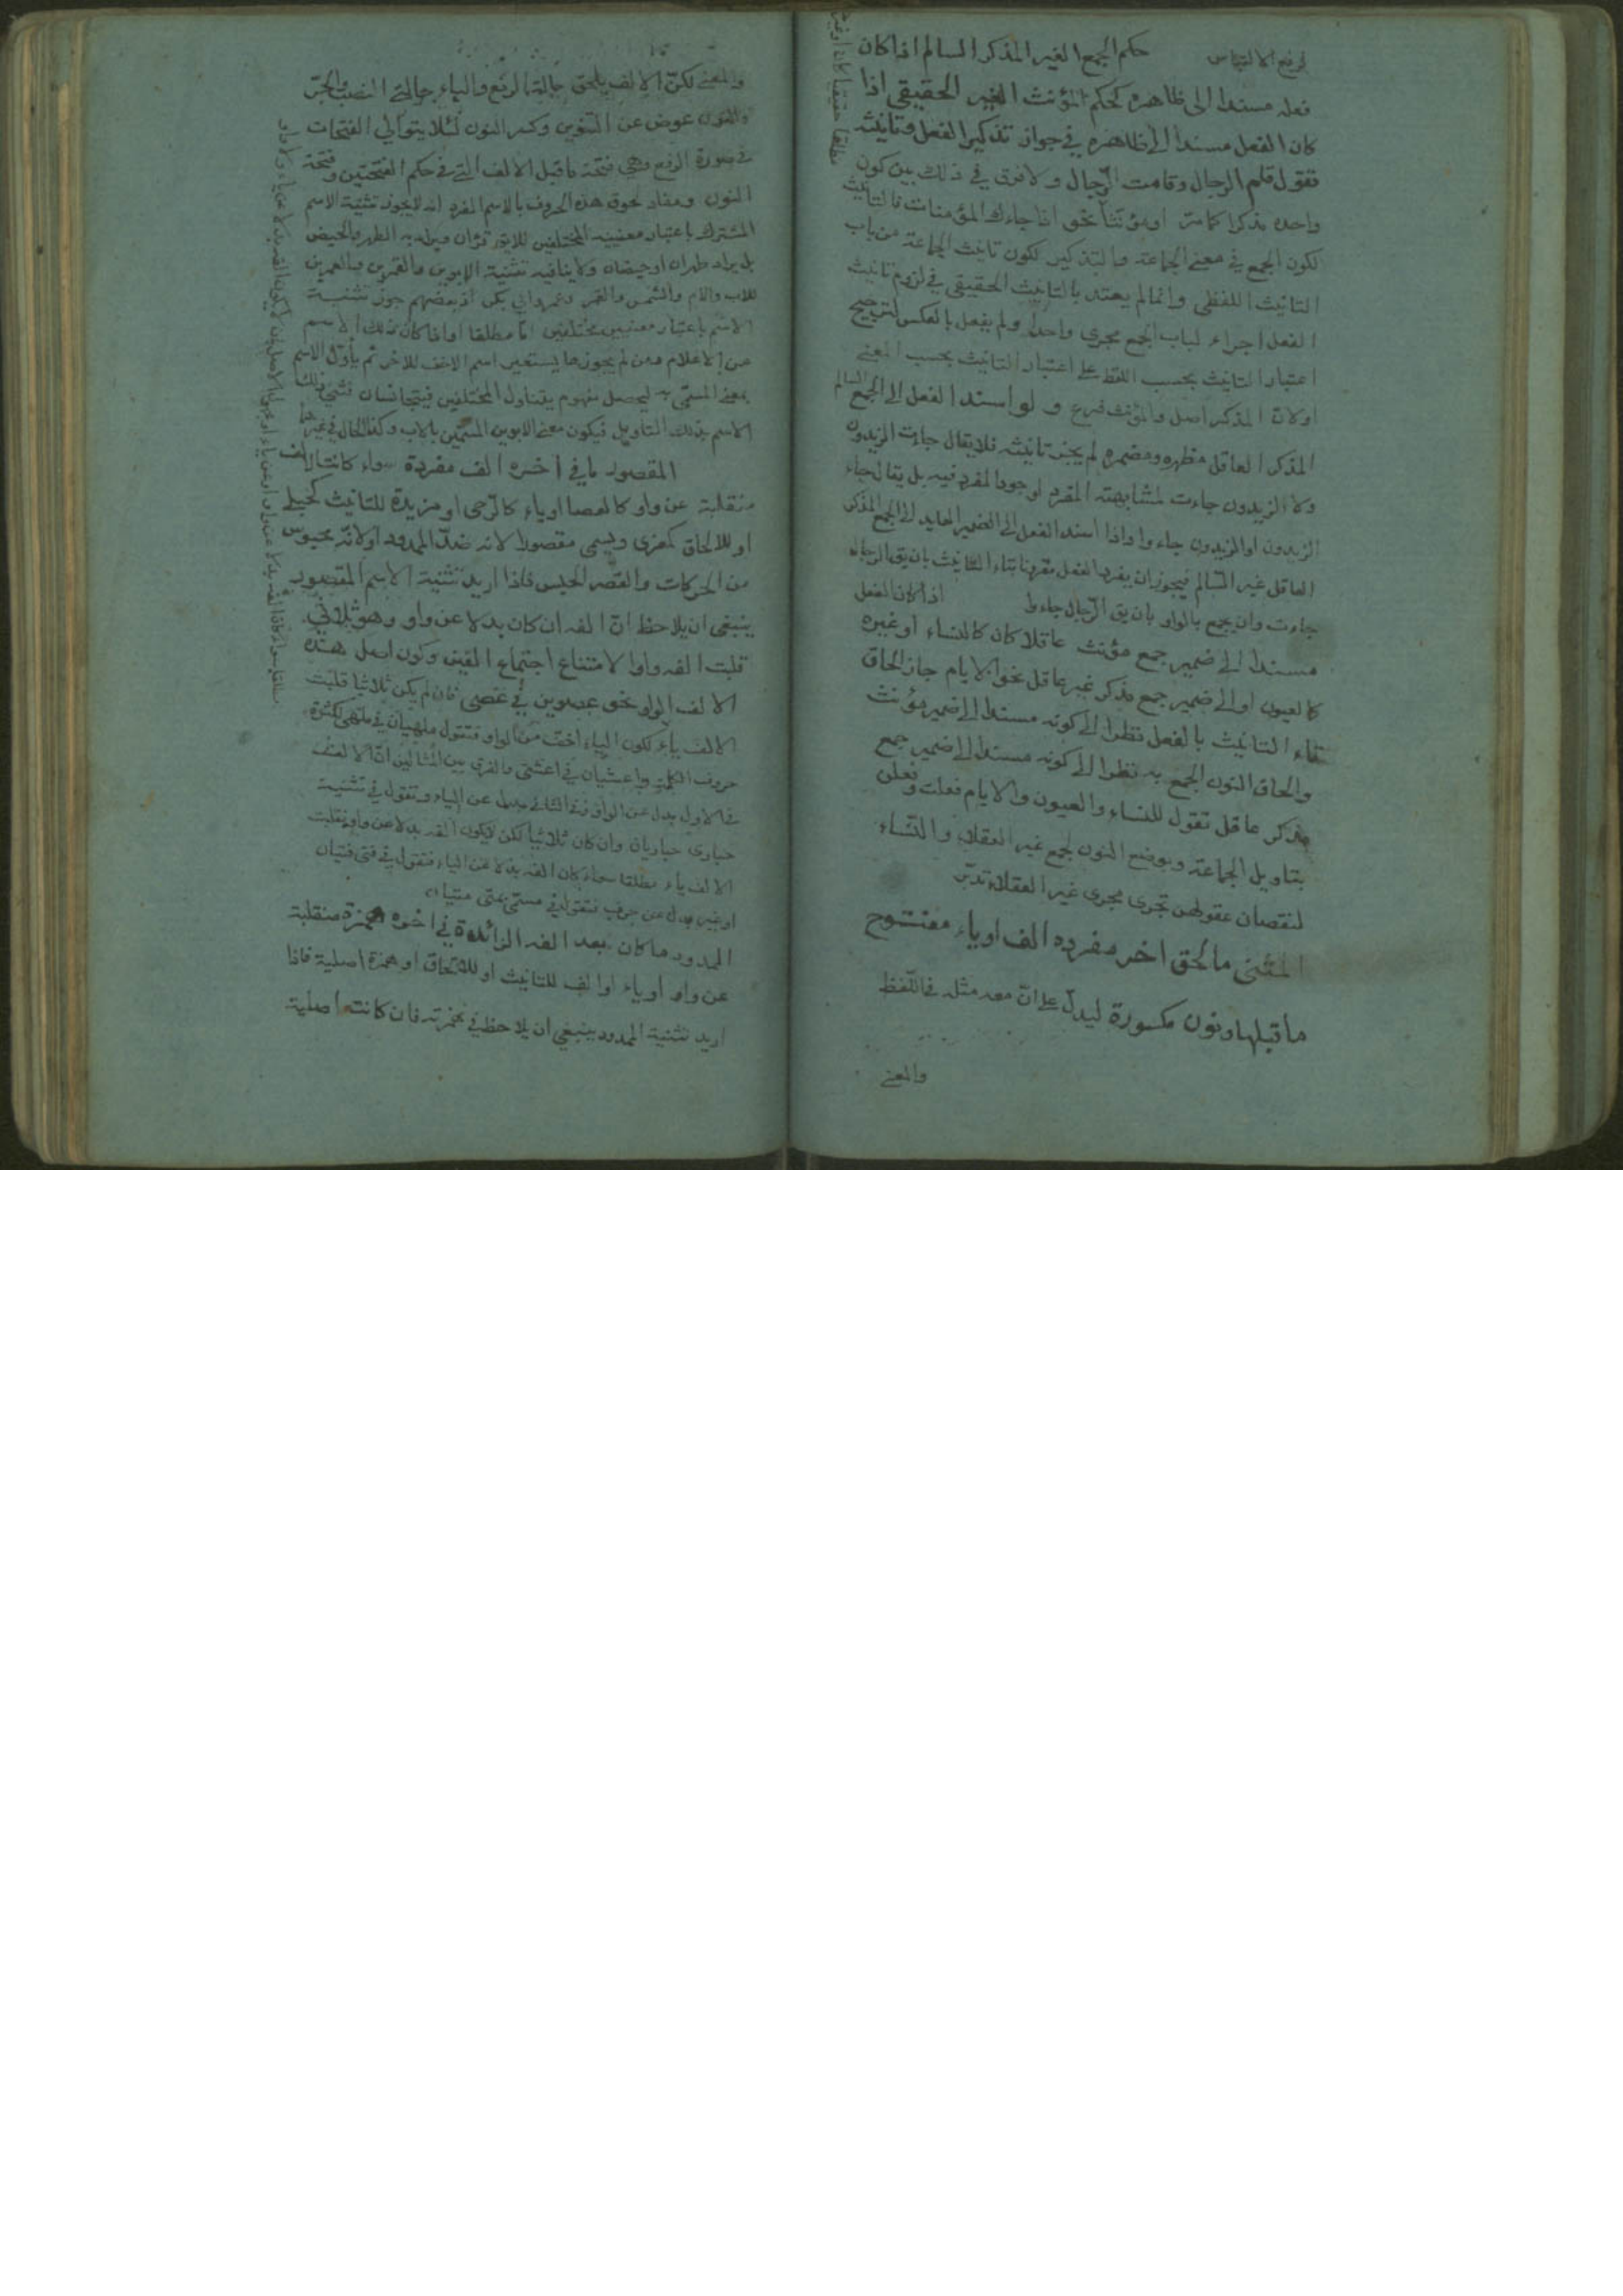 لرفع الالتباس حكم الجمع الغير المذكر السالم اذا كان
فعله مسندا الى ظاهره كحكم المؤنث الغير الحقيقي اذا
كان الفعل مسندا الى ظاهره في جواز تذكير الفعل وتانيثه
فتقول قام الرجال وقامت الرجال ولا فرق في ذلك بين كون
واحده مذكرا كما مر او مؤنثا نحو اذا جاءك المؤمنات فالتانيث
لكون الجمع في معنى الجماعة والتذكير لكون تانيث الجماعة من باب
التانيث اللفظي وانما لم يعتد بالتانيث الحقيقي في لزوم تانيث
الفعل اجراء لباب الجمع مجرى واحدا ولم يفعل بالعكس لترجيح
اعتبار التانيث بحسب اللفظ على اعتبار التانيث بحسب المعنى
اولان المذكر اصل والمؤنث فرع و لو اسند الفعل الى الجمع السالم
المذكر العاقل مظهره ومضمره لم يجز تانيثه فلا يقال جاءت الزيدون
ولا الزيدون جاءت لمشابهته المفرد لوجود المفرد فيه بل يقال جاء
الزيدون او الزيدون جاءوا واذا اسند الفعل الى الضمير العايد الى الجمع المذكر
العاقل غير السالم فيجوز ان يفرد الفعل مقرونا بتاء التانيث بان يق الرجال
جاءت وان يجمع بالواو بان يق الرجال جاءوا اذا كان الفعل
مسندا الى ضمير جمع مؤنث عاقلا كان كالنساء او غيره
كالعيون او الى ضمير جمع مذكر غير عاقل نحو الايام جاز الحاق
تاء التانيث بالفعل نظرا الى كونه مسندا الى ضمير مؤنث
والحاق النون الجمع به نظرا الى كونه مسندا الى ضمير جمع
مذكر عاقل تقول للنساء والعيون والايام فعلت وفعلن
بتاويل الجماعة وبوضع النون لجمع غير العقلاء والنساء
لنقصان عقولهن تجرى مجرى غير العقلاء تدبر
المثنى ما لحق اخر مفرده الف او ياء مفتوح
ما قبلها ونون مكسورة ليدل على ان معه مثله في اللفظ
والمعنى
والمعنى لكن الالف يلحق حالة الرفع والياء حالتى النصب والجر
والنون عوض عن التنوين وكسر النون لئلا يتوالي الفتحات
في صورة الرفع وهي فتحة ما قبل الالف التي في حكم الفتحتين وفتحة
النون ومفاد لحوق هذه الحروف بالاسم المفرد انه لا يجوز تثنية الاسم
المشترك باعتبار معنييه المختلفين للايق قرءان ويراد به الطهر والحيض
بل يراد طهران او حيضان ولا ينافيه تثنية الابوين والقمرين والعمرين
للاب والام والشمس والقمر وعمر وابي بكر اذ بعضهم جوز تثنية
الاسم باعتبار معنيين مختلفين اما مطلقا او اذا كان ذلك الاسم
من الاعلام ومن لم يجوزها يستعير اسم الاخف للاخر ثم يأول الاسم
بمعنى المسمى به ليحصل مفهوم يتناول المختلفين فيتجانسان فثنى ذلك
الاسم بذلك التاويل فيكون معنى الابوين المسميين بالاب وكذا الحال في غيرهما
المقصور ما في اخره الف مفردة سواء كانت الالف
منقلبة عن واو كالعصا او ياء كالرحى او مزيدة للتانيث كحبلى
او للالحاق كمعزى ويسمى مقصورا لانه ضد الممدود اولانه محبوس
من الحركات والقصر الحبس فاذا اريد تثنية الاسم المقصور
ينبغي ان يلاحظ ان الفه ان كان بدلا عن واو وهو ثلاثي
قلبت الفه واوا لامتناع اجتماع الفين وكون اصل هذه
الالف الواو نحو عصوين في عصى فان لم يكن ثلاثيا قلبت
الالف ياء لكون الياء اخف من الواو فتقول ملهيان في ملهى لكثرة
حروف الكلمة واعشيان في اعشى والفرق بين المثالين ان الالف
في الاول بدل عن الواو وفي الثاني بدل عن الياء وتقول في تثنية
حبارى حباريان وان كان ثلاثيا لكن لا يكون الفه بدلا عن واو فقلبت
الالف ياء مطلقا سواء كان الفه بدلا عن الياء فتقول في فتى فتيان
او غير بدل عن حرف فتقول في مسمى بمتى متيان
الممدود ما كان بعد الفه الزائدة في اخره همزة منقلبة
عن واو او ياء او الف للتانيث او للالحاق او همزة اصلية فاذا
اريد تثنية الممدود ينبغي ان يلاحظ في همزته فان كانت اصلية